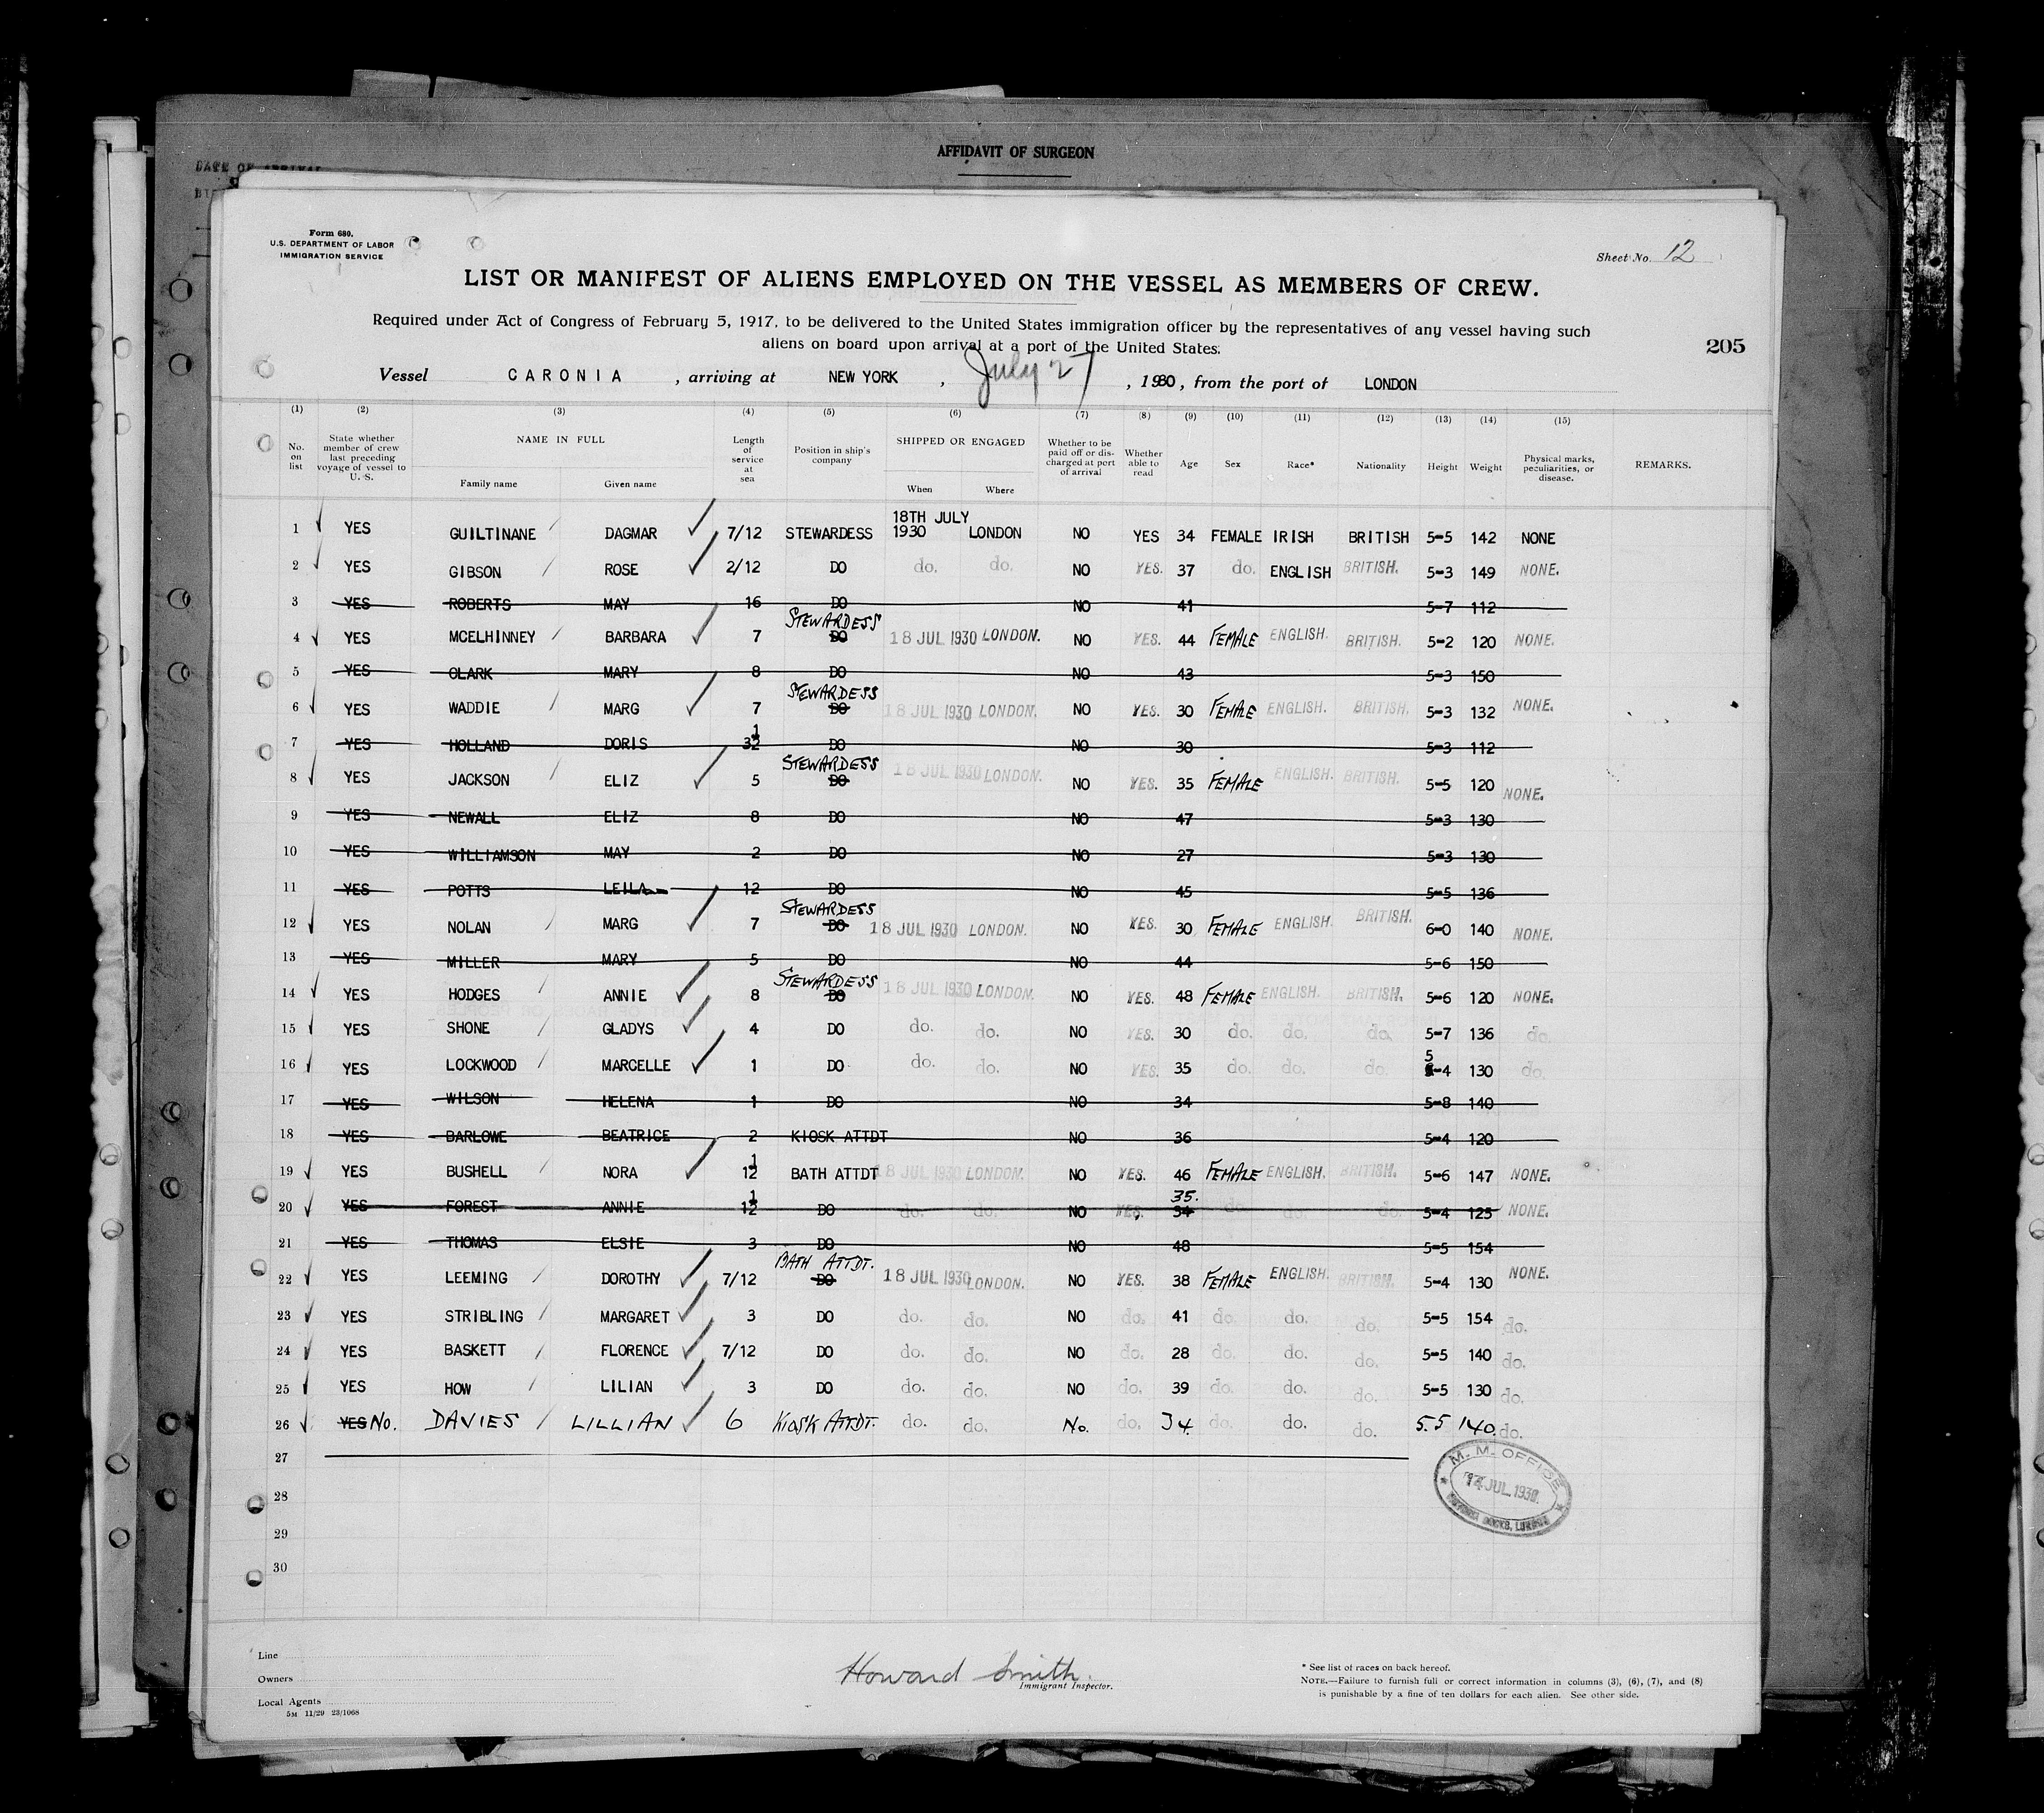 DATE OF ARRIVAL
AFFIDAVIT OF SURGEON
Form 680.
U.S. DEPARTMENT OF LABOR
IMMIGRATION SERVICE
Sheet No. 12
LIST OR MANIFEST OF ALIENS EMPLOYED ON THE VESSEL AS MEMBERS OF CREW.
Required under Act of Congress of February 5, 1917, to be delivered to the United States immigration officer by the representatives of any vessel having such
aliens on board upon arrival at a port of the United States.
205
Vessel CARONIA , arriving at NEW YORK , July 27 , 1930, from the port of LONDON
(1) (2) (3) (4) (5) (6) (7) (8) (9) (10) (11) (12) (13) (14) (15)
No. on list State whether member of crew last preceding voyage of vessel to U. S. NAME IN FULL Family name Given name Length of service at sea Position in ship's company SHIPPED OR ENGAGED When Where Whether to be paid off or discharged at port of arrival Whether able to read Age Sex Race* Nationality Height Weight Physical marks, peculiarities, or disease. REMARKS.
1 YES GUILTINANE DAGMAR 7/12 STEWARDESS 18TH JULY 1930 LONDON NO YES 34 FEMALE IRISH BRITISH 5-5 142 NONE
2 YES GIBSON ROSE 2/12 DO do. do. NO YES. 37 do. ENGLISH BRITISH. 5-3 149 NONE.
3 YES ROBERTS MAY 16 DO NO 41 5-7 112
4 YES MCELHINNEY BARBARA 7 DO STEWARDESS 18 JUL 1930 LONDON. NO YES. 44 FEMALE ENGLISH. BRITISH. 5-2 120 NONE.
5 YES CLARK MARY 8 DO NO 43 5-3 150
6 YES WADDIE MARG 7 DO STEWARDESS 18 JUL 1930 LONDON. NO YES. 30 FEMALE ENGLISH. BRITISH. 5-3 132 NONE.
7 YES HOLLAND DORIS 1 32 DO NO 30 5-3 112
8 YES JACKSON ELIZ 5 DO STEWARDESS 18 JUL 1930 LONDON. NO YES. 35 FEMALE ENGLISH. BRITISH. 5-5 120 NONE.
9 YES NEWALL ELIZ 8 DO NO 47 5-3 130
10 YES WILLIAMSON MAY 2 DO NO 27 5-3 130
11 YES POTTS LEILA 12 DO NO 45 5-5 136
12 YES NOLAN MARG 7 DO STEWARDESS 18 JUL 1930 LONDON. NO YES. 30 FEMALE ENGLISH. BRITISH. 6-0 140 NONE.
13 YES MILLER MARY 5 DO NO 44 5-6 150
14 YES HODGES ANNIE 8 DO STEWARDESS 18 JUL 1930 LONDON. NO YES. 48 FEMALE ENGLISH. BRITISH. 5-6 120 NONE.
15 YES SHONE GLADYS 4 DO do. do. NO YES. 30 do. do. do. 5-7 136 do.
16 YES LOCKWOOD MARCELLE 1 DO do. do. NO YES. 35 do. do. do. 5-4 130 do.
17 YES WILSON HELENA 1 DO NO 34 5-8 140
18 YES BARLOWE BEATRICE 2 KIOSK ATTDT NO 36 5-4 120
19 YES BUSHELL NORA 1 12 BATH ATTDT 18 JUL 1930 LONDON. NO YES. 46 FEMALE ENGLISH. BRITISH. 5-6 147 NONE.
20 YES FOREST ANNIE 1 12 DO do. do. NO YES. 34 35. do. do. do. 5-4 125 NONE.
21 YES THOMAS ELSIE 3 DO NO 48 5-5 154
22 YES LEEMING DOROTHY 7/12 DO BATH ATTDT. 18 JUL 1930 LONDON. NO YES. 38 FEMALE ENGLISH. BRITISH. 5-4 130 NONE.
23 YES STRIBLING MARGARET 3 DO do. do. NO do. 41 do. do. do. 5-5 154 do.
24 YES BASKETT FLORENCE 7/12 DO do. do. NO do. 28 do. do. do. 5-5 140 do.
25 YES HOW LILIAN 3 DO do. do. NO do. 39 do. do. do. 5-5 130 do.
26 YES No. DAVIES LILLIAN 6 KIOSK ATTDT. do. do. No. do. 34. do. do. do. 5.5 140. do.
27
28
29
30
M. M. OFFICE
14 JUL 1930
DOCKS, LONDON
Line
Owners
Local Agents
5M 11/29 23/1068
Howard Smith.
Immigrant Inspector.
* See list of races on back hereof.
NOTE.—Failure to furnish full or correct information in columns (3), (6), (7), and (8)
is punishable by a fine of ten dollars for each alien. See other side.